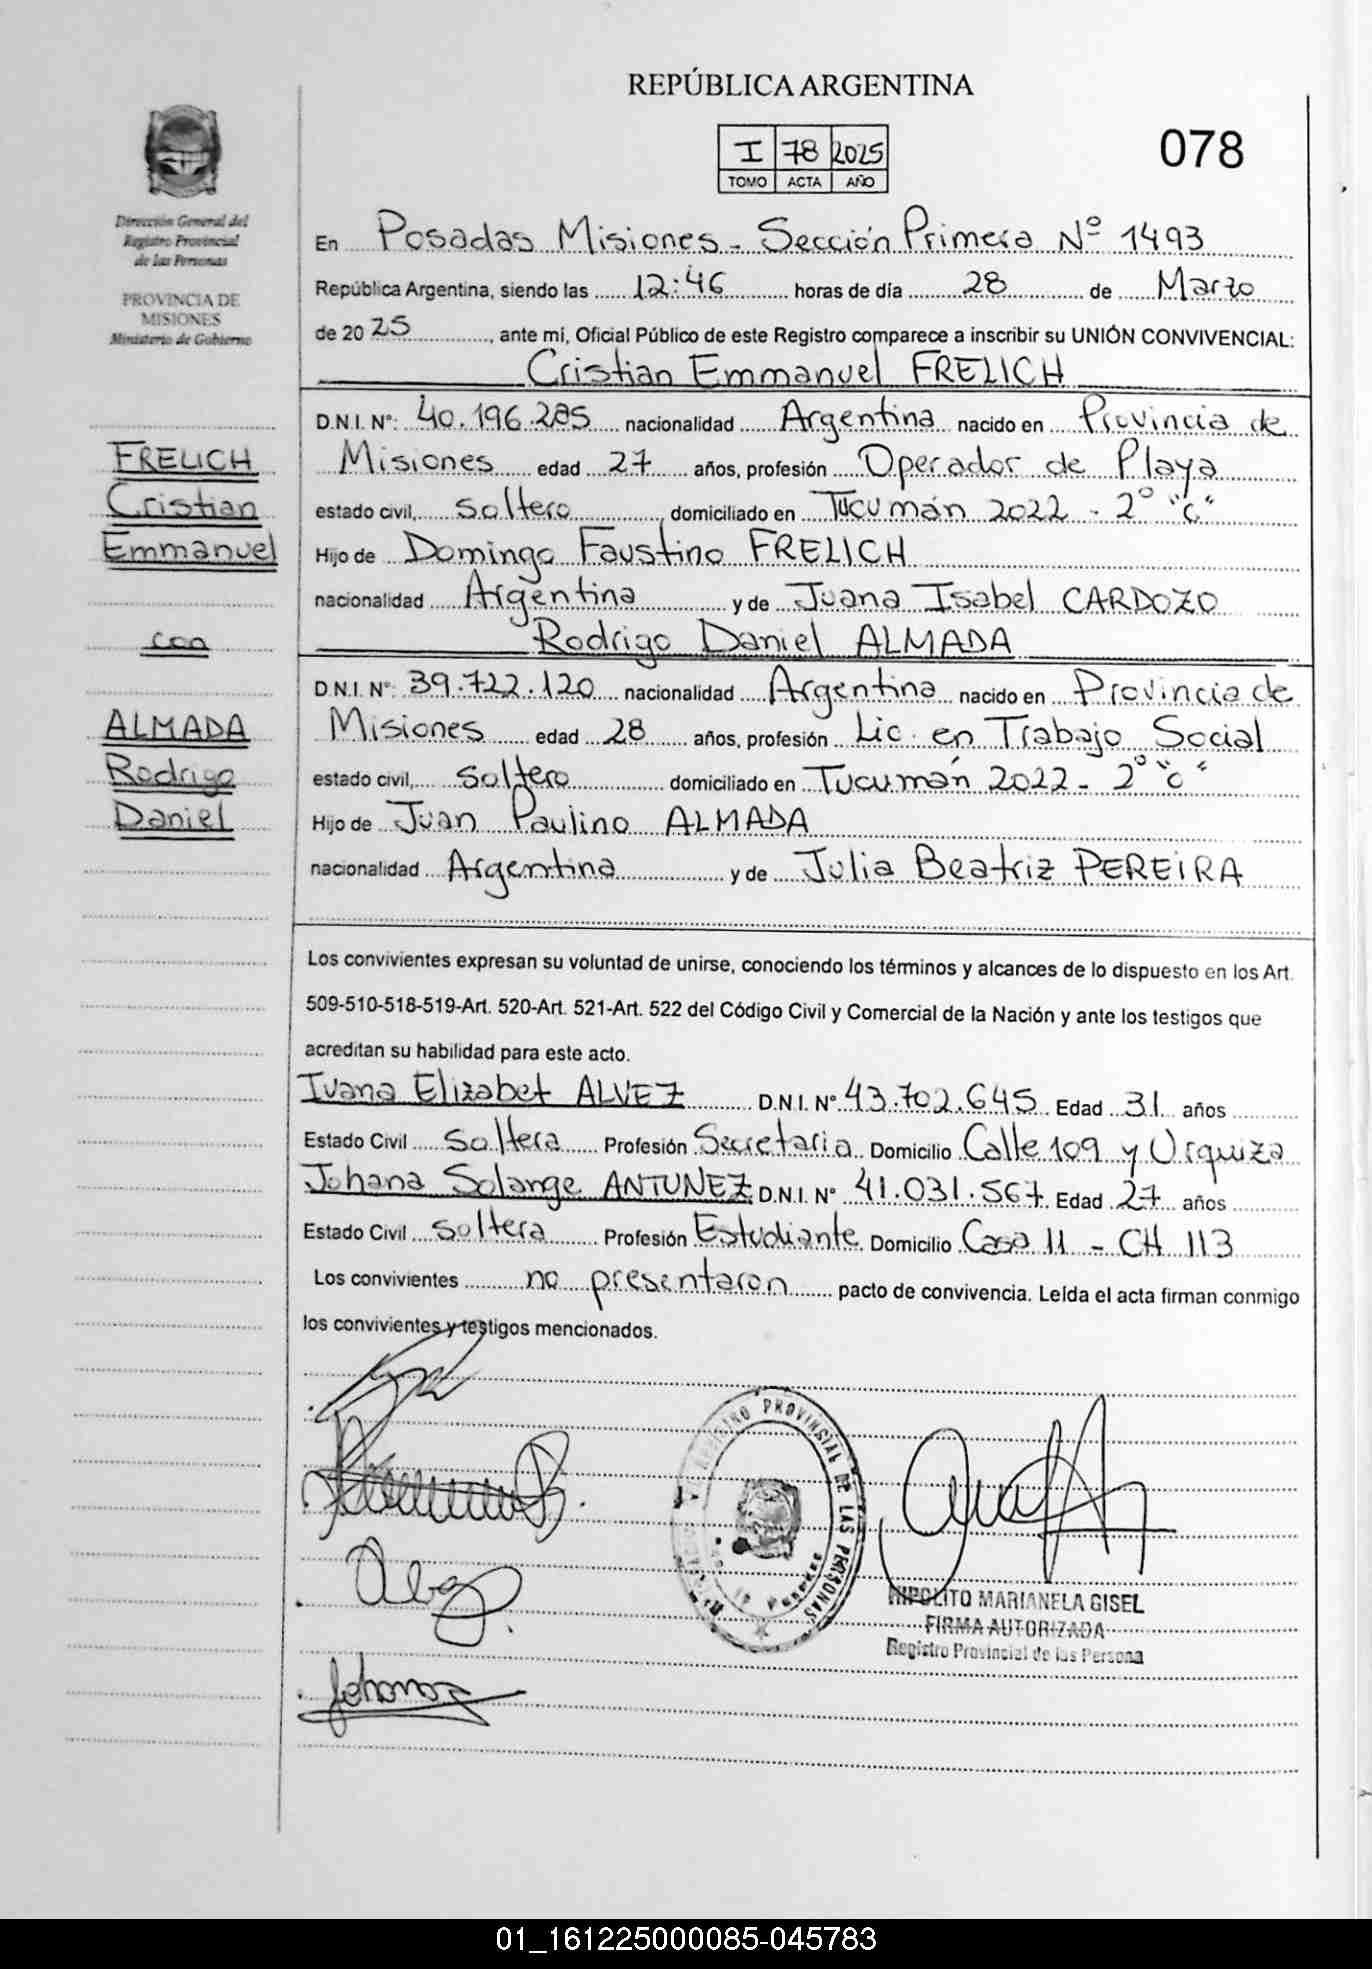 REPÚBLICA ARGENTINA
I 78 2025
TOMO ACTA AÑO
078
Dirección General del
Registro Provincial
de las Personas
PROVINCIA DE
MISIONES
Ministerio de Gobierno
FRELICH
Cristian
Emmanuel
con
ALMADA
Rodrigo
Daniel
En Posadas Misiones - Sección Primera Nº 1493
República Argentina, siendo las 12:46 horas de día 28 de Marzo
de 20 25, ante mi, Oficial Público de este Registro comparece a inscribir su UNIÓN CONVIVENCIAL:
Cristian Emmanuel FRELICH
D.N.I. Nº: 40.196.285 nacionalidad Argentina nacido en Provincia de
Misiones edad 27 años, profesión Operador de Playa
estado civil, soltero domiciliado en Tucumán 2022 - 2º "c"
Hijo de Domingo Faustino FRELICH
nacionalidad Argentina y de Juana Isabel CARDOZO
Rodrigo Daniel ALMADA
D.N.I. Nº: 39.722.120 nacionalidad Argentina nacido en Provincia de
Misiones edad 28 años, profesión Lic. en Trabajo Social
estado civil, soltero domiciliado en Tucumán 2022 - 2º "c"
Hijo de Juan Paulino ALMADA
nacionalidad Argentina y de Julia Beatriz PEREIRA
Los convivientes expresan su voluntad de unirse, conociendo los términos y alcances de lo dispuesto en los Art.
509-510-518-519-Art. 520-Art. 521-Art. 522 del Código Civil y Comercial de la Nación y ante los testigos que
acreditan su habilidad para este acto.
Ivana Elizabet ALVEZ D.N.I. Nº 43.702.645 Edad 31 años
Estado Civil soltera Profesión Secretaria Domicilio Calle 109 y Urquiza
Johana Solange ANTUNEZ D.N.I. Nº 41.031.567 Edad 27 años
Estado Civil soltera Profesión Estudiante Domicilio Casa 11 - CH 113
Los convivientes no presentaron pacto de convivencia. Leída el acta firman conmigo
los convivientes y testigos mencionados.
REGISTRO PROVINCIAL DE LAS PERSONAS
HIPOLITO MARIANELA GISEL
FIRMA AUTORIZADA
Registro Provincial de las Persona
01_161225000085-045783